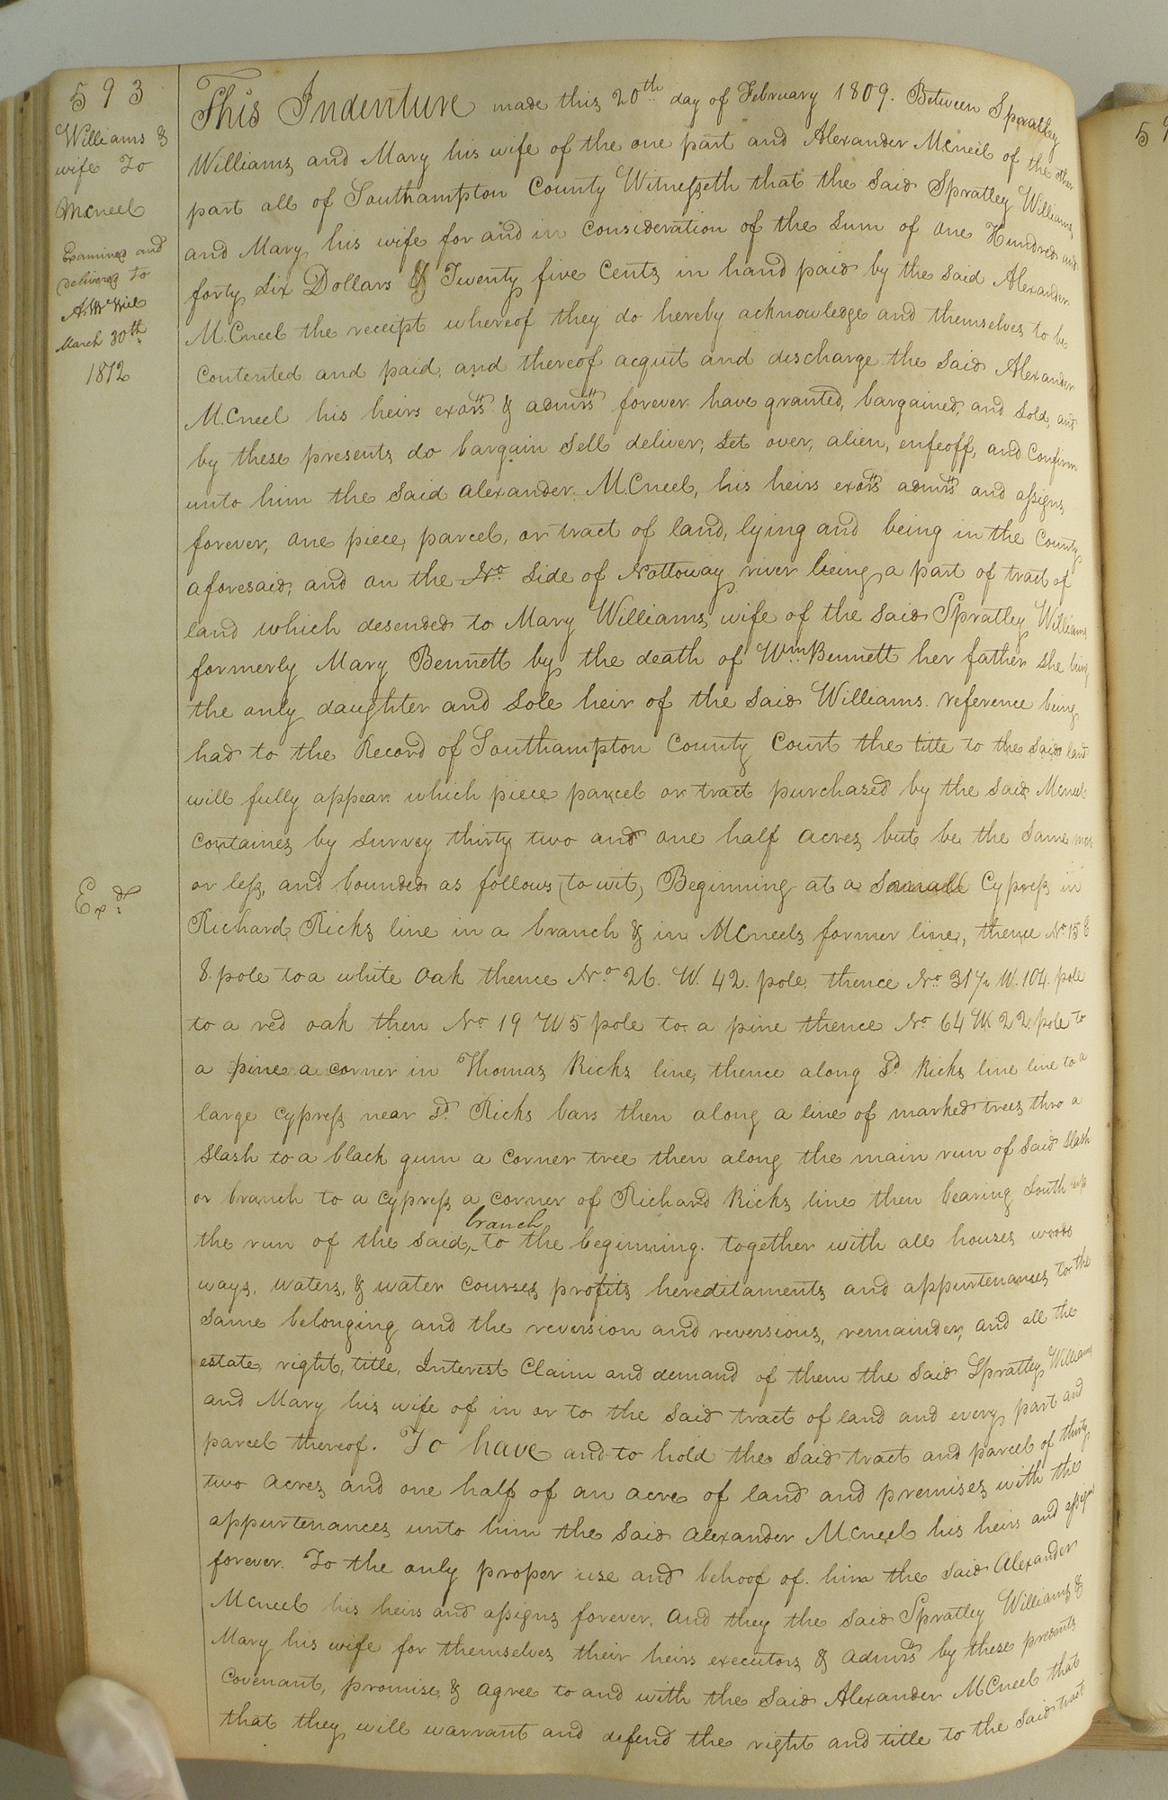 593
Williams &
wife To
Mcneel
Examined and
delivered to
A. McNeil
March 30th
1812
Exd.
This Indenture made this 20th day of February 1809. Between Spratley
Williams, and Mary his wife of the one part and Alexander Mcneil of the other
part all of Southampton County Witnesseth that the said Spratley Williams,
and Mary, his wife for and in consideration of the Sum of one Hundred and
forty six Dollars & Twenty five Cents in hand paid by the said Alexander
M.Cneel the receipt whereof they do hereby acknowledge and themselves to be
contented and paid, and thereof acquit and discharge the said Alexander
M.Cneel his heirs exors & admrs forever have granted, bargained, and sold, and
by these presents do bargain Sell deliver, Set over, alien, enfeoff, and Confirm
unto him the said alexander. M.Cneel, his heirs exors admrs and assigns
forever, one piece, parcel, or tract of land, lying and being in the County
aforesaid, and on the No. Side of Nottoway river being a part of tract of
land which desended to Mary Williams, wife of the said Spratley Williams
formerly Mary Bennett by the death of Wm. Bennett her father she being
the only daughter and Sole heir of the said Williams. reference being
had to the Record of Southampton County Court the title to the said land
will fully appear. which piece parcel or tract purchased by the said Mcneel
containes by Survey thirty two and one half acres, but be the same more
or less, and bounded as follows (to wit) Beginning at a Small Cypress in
Richard, Ricks line in a branch & in McCneels former line, thence No 15 E
8. pole to a white Oak thence No. 26. W. 42. pole. thence No. 31½ W. 104. pole
to a red oak then No 19 W 5 pole to a pine thence No 64 W 22 pole to
a pine a corner in Thomas Ricks line, thence along Sd. Ricks line line to a
large cypress near Sd. Ricks bars then along a line of marked trees thro a
Slash to a black gum a corner tree then along the main run of said Slash
or branch to a cypress a corner of Richard Ricks line then bearing South up
branch
the run of the said, to the beginning. together with all houses woods
ways, waters, & water courses, profits hereditaments and appurtenances to the
same belonging and the reversion and reversions, remainder, and all the
estate, right, title, Interest Claim and demand of them the said Spratley Williams
and Mary his wife of in or to the said tract of land and every part and
parcel thereof. To have and to hold the said tract and parcel of thirty
two acres and one half of an acre of land and premises with the
appurtenances unto him the said alexander M.Cneel his heirs and assigns
forever. To the only proper use and behoof of. him the said Alexander
M.Cneel his heirs and assigns forever. and they the said Spratley Williams &
Mary his wife for themselves their heirs executors & admrs by these presents
Covenant, promise, & agree to and with the said Alexander McCneel that
that they will warrant and defend the right and title to the said tract